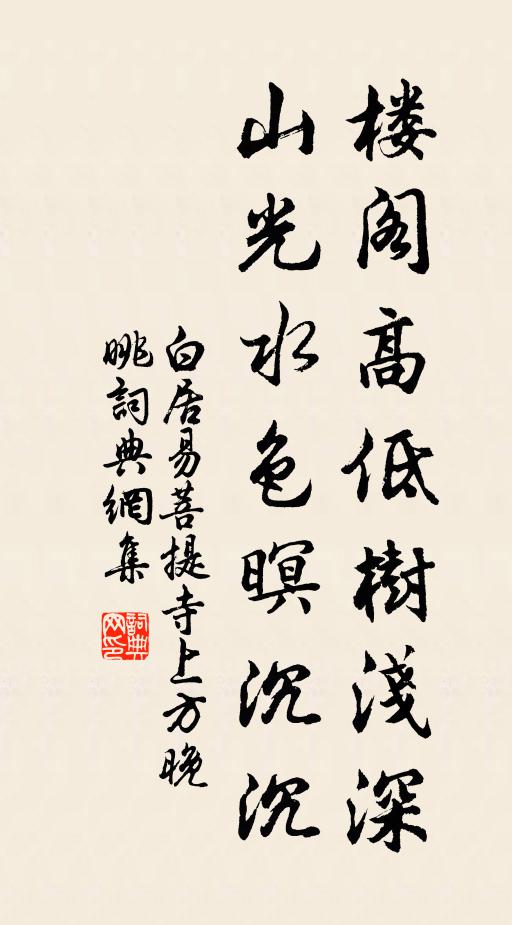 楼阁高低樹淺深
山光水色暝沉沉
白居易菩提寺上方晚
眺詞典網集
詞典网印